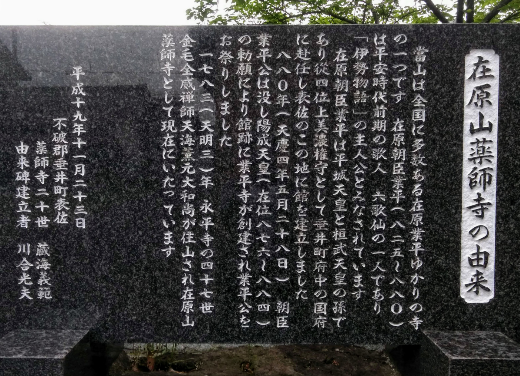 在原山薬師寺の由来
當山は全国に多数ある在原業平ゆかりの寺
の一つです 在原朝臣業平(八二五〜八八〇)
は平安時代前期の歌人 六歌仙の一人であり
「伊勢物語」の主人公とみなされています
在原朝臣業平は平城天皇と桓武天皇の孫で
あり従四位上美濃権守として垂井町府中の国府
に赴任し表佐のこの地に館を建立しました
八八〇年(天慶四年五月二十八日) 朝臣
業平公は没し陽成天皇(在位八七六〜八八四)
の勅願により館跡に業平寺が創建され業平公を
お祭りしました
一七八三(天明三)年 永平寺の四十七世
金毛全蔵禅師天海薫元大和尚が住山され在原山
薬師寺として現在にいたっています
平成十九年十一月二十三日
不破郡垂井町表佐
薬師寺二十世 蔵海義範
由来碑建立者 川合光夫